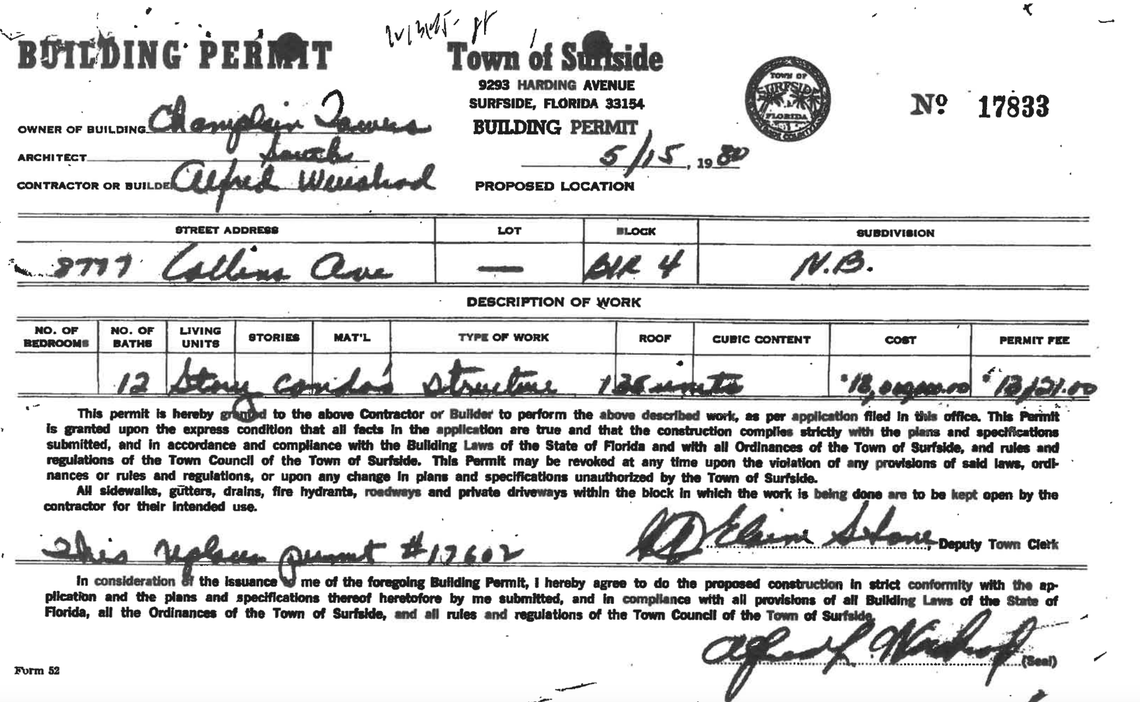 BUILDING PERMIT
Town of Surfside
9293 HARDING AVENUE
SURFSIDE, FLORIDA 33154
BUILDING PERMIT
TOWN OF SURFSIDE FLORIDA
Nº 17833
OWNER OF BUILDING Champlain Towers
ARCHITECT South
5/15, 1980
CONTRACTOR OR BUILDE Alfred Weisbrod
PROPOSED LOCATION
STREET ADDRESS LOT BLOCK SUBDIVISION
8777 Collins Ave — Blk 4 N.B.
DESCRIPTION OF WORK
NO. OF BEDROOMS NO. OF BATHS LIVING UNITS STORIES MAT'L TYPE OF WORK ROOF CUBIC CONTENT COST PERMIT FEE
12 Story condo's structure units
This permit is hereby granted to the above Contractor or Builder to perform the above described work, as per application filed in this office. This Permit
is granted upon the express condition that all facts in the application are true and that the construction complies strictly with the plans and specifications
submitted, and in accordance and compliance with the Building Laws of the State of Florida and with all Ordinances of the Town of Surfside, and rules and
regulations of the Town Council of the Town of Surfside. This Permit may be revoked at any time upon the violation of any provisions of said laws, ordi-
nances or rules and regulations, or upon any change in plans and specifications unauthorized by the Town of Surfside.
All sidewalks, gutters, drains, fire hydrants, roadways and private driveways within the block in which the work is being done are to be kept open by the
contractor for their intended use.
This replaces permit #17602
Elaine Stone, Deputy Town Clerk
In consideration of the issuance to me of the foregoing Building Permit, I hereby agree to do the proposed construction in strict conformity with the ap-
plication and the plans and specifications thereof heretofore by me submitted, and in compliance with all provisions of all Building Laws of the State of
Florida, all the Ordinances of the Town of Surfside, and all rules and regulations of the Town Council of the Town of Surfside.
(Seal)
Form 52